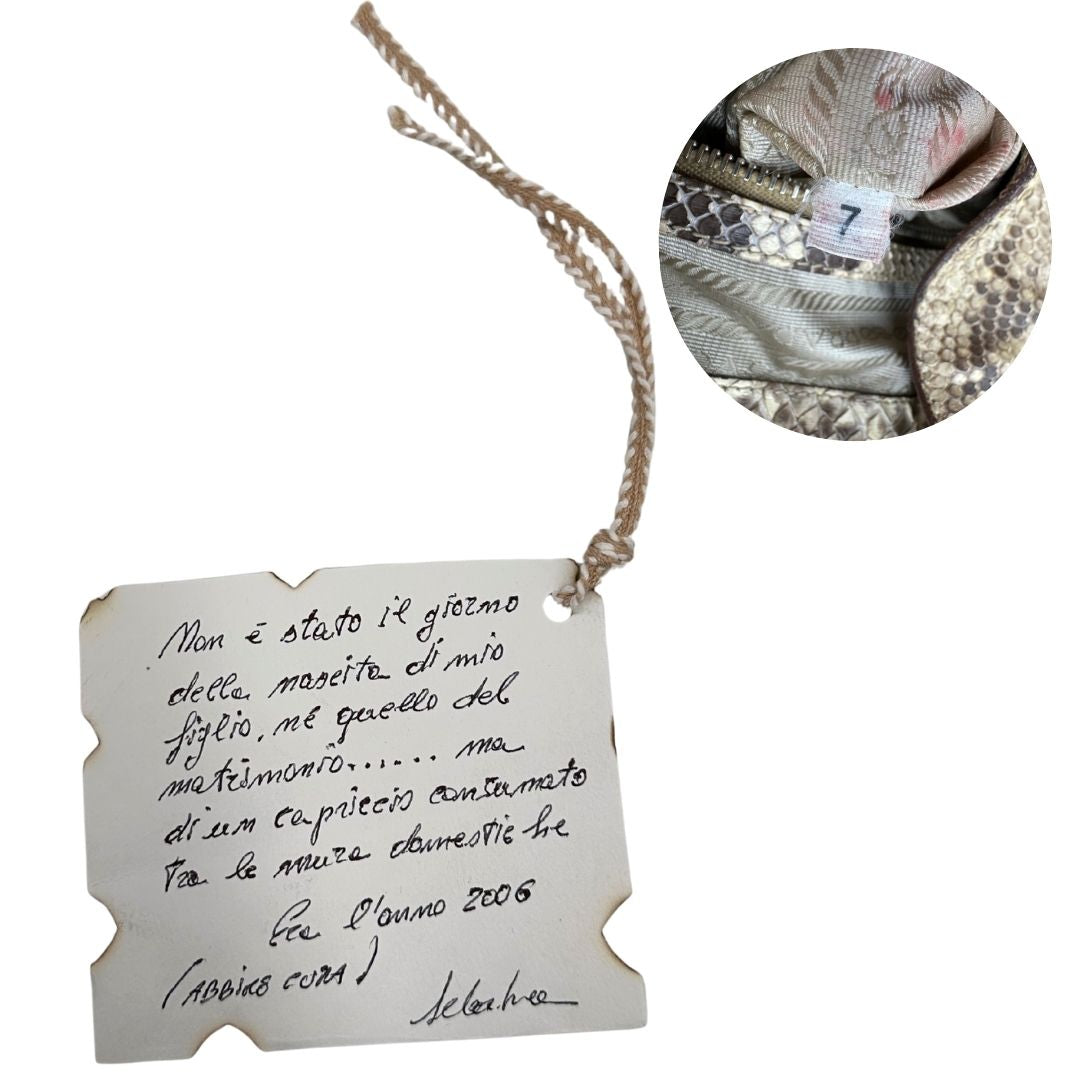 7
Non è stato il giorno
della nascita di mio
figlio, né quello del
matrimonio...... ma
di un capriccio consumato
tra le mura domestiche
Era l'anno 2006
(ABBINE CURA)